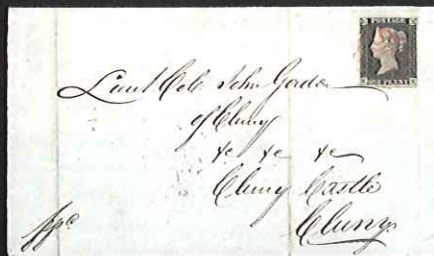 POSTAGE
ONE PENNY
Lieut Col. John Gordon
of Cluny
&c &c &c
Cluny Castle
Cluny